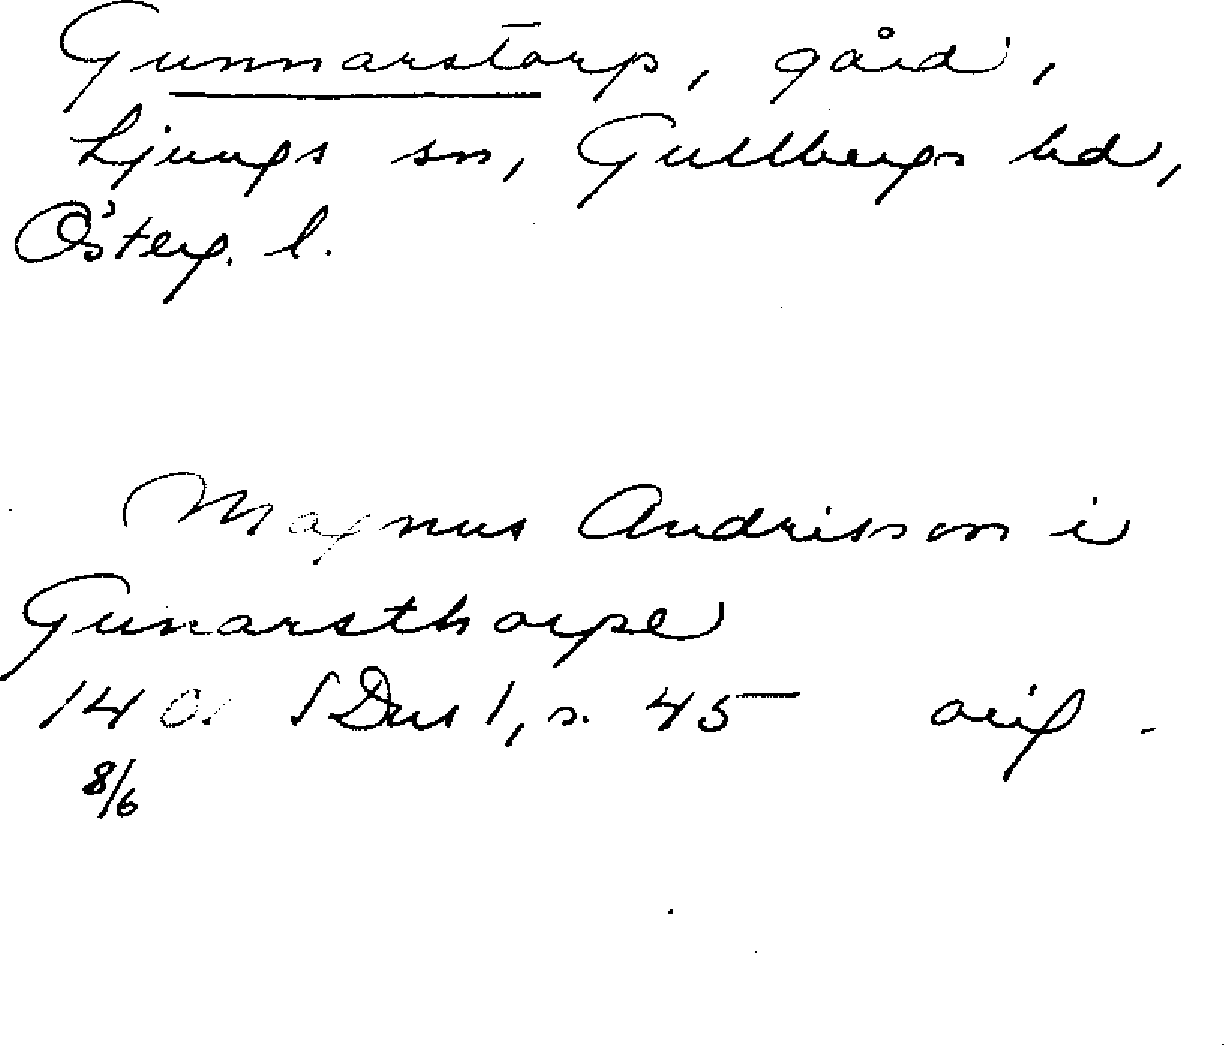 Gunnarstorp, gård,
Ljungs sn, Gullbergs hd,
Österg. l.
Magnus Andrisson i
Gunarsthorpe
140 SDns 1, s. 45 orig.
8/6